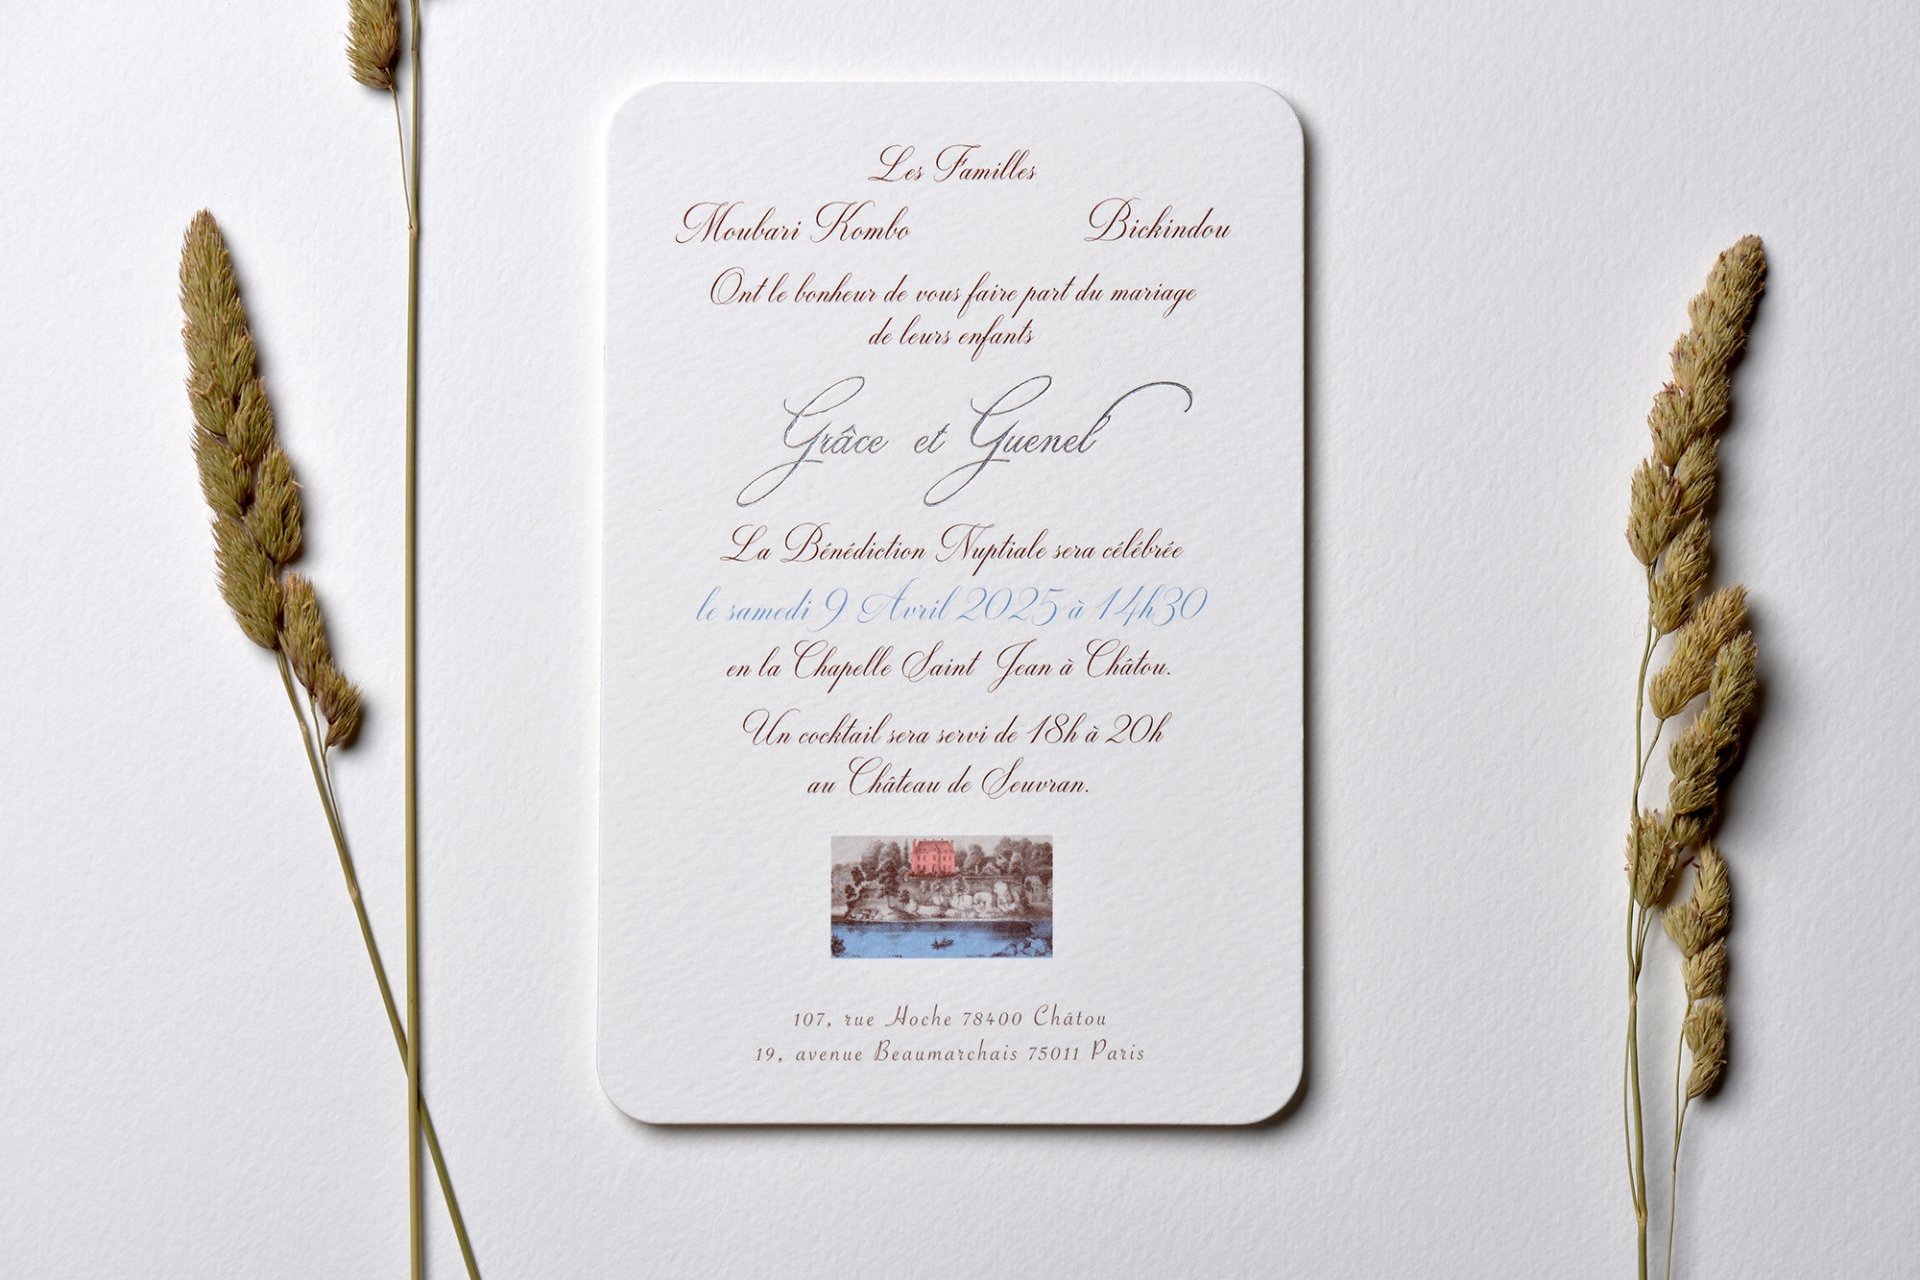 Les Familles
Moubari Kombo Bickindou
Ont le bonheur de vous faire part du mariage
de leurs enfants
Grâce et Guenel
La Bénédiction Nuptiale sera célébrée
le samedi 9 Avril 2025 à 14h30
en la Chapelle Saint Jean à Châtou.
Un cocktail sera servi de 18h à 20h
au Château de Seuvran.
107, rue Hoche 78400 Châtou
19, avenue Beaumarchais 75011 Paris